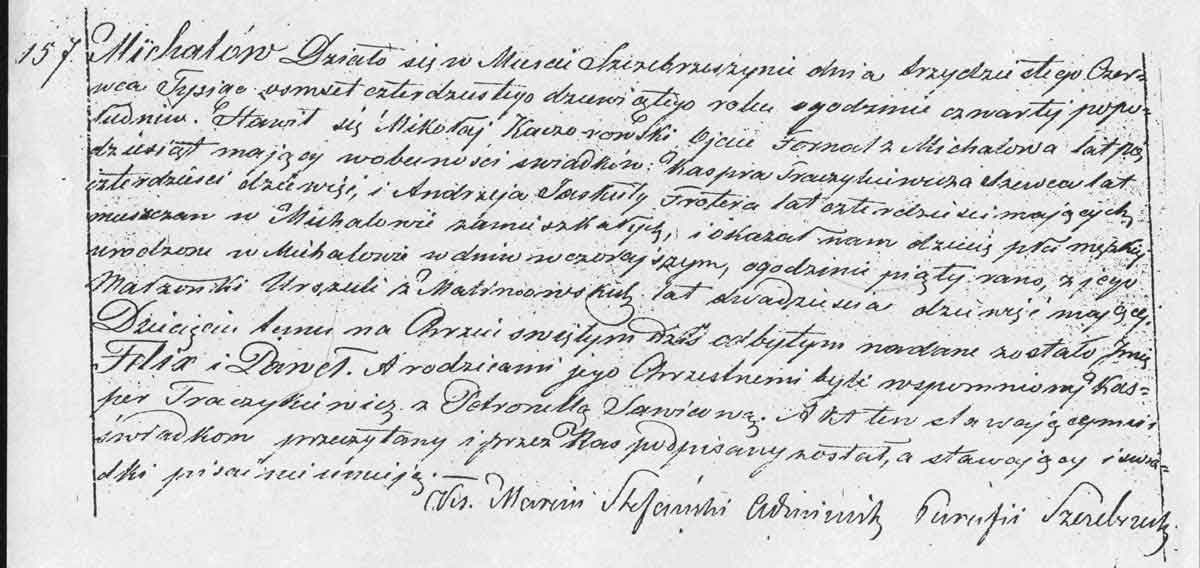 157. Michałów Działo się w Mieście Szczebrzeszynie dnia trzydziestego Czer-
wca Tysiąc osmset czterdziestego dziewiątego roku o godzinie czwartej popo-
łudniu. Stawił się Mikołaj Kaczorowski Ojciec Fornal z Michałowa lat pię
dziesiąt mający w obecności swiadków Kaspra Traczykiewicza Szewca lat
czterdzieści dziewięć, i Andrzeja Jaskuły Frotera lat czterdzieści mających
mieszczan w Michałowie zamieszkałych, i okazał nam dziecię płci męzkiej
urodzone w Michałowie w dniu wczorajszym, o godzinie piąty rano, z jego
Małżonki Urszuli z Malinowskich lat dwadzieścia dziewięć mający,
Dziecięciu temu na Chrzcie swiętym dziś odbytym nadane zostało Imię
Felix i Paweł. A rodzicami jego Chrzestnemi byli wspomniony Kas-
per Traczykiewicz z Petronellą Sawicową. Akt ten stawającemu i
świadkom przeczytany i przez Nas podpisany został, a stawający i swia-
dki pisać nieumieją.
Xs. Marcin Stefański Administ Parafii Szczebrzesk